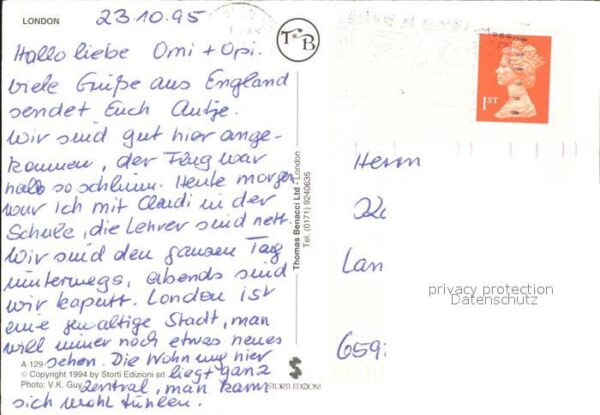 LONDON
23.10.95
Hallo liebe Omi + Opi.
viele Grüße aus England
sendet Euch Antje.
Wir sind gut hier ange-
kommen, der Flug war
halb so schlimm. Heute morgen
war ich mit Claudi in der
Schule, die Lehrer sind nett.
Wir sind den ganzen Tag
unterwegs, abends sind
wir kaputt. London ist
eine gewaltige Stadt, man
will immer noch etwas neues
sehen. Die Wohnung hier
liegt ganz
zentral, man kann
sich wohl fühlen.
A 129
© Copyright 1994 by Storti Edizioni srl
Photo: V.K. Guy
STORTI EDIZIONI
T&B
Thomas Benacci Ltd - London
Tel. (0171) 9240636
1ST
Herrn
Lan
privacy protection
Datenschutz
659